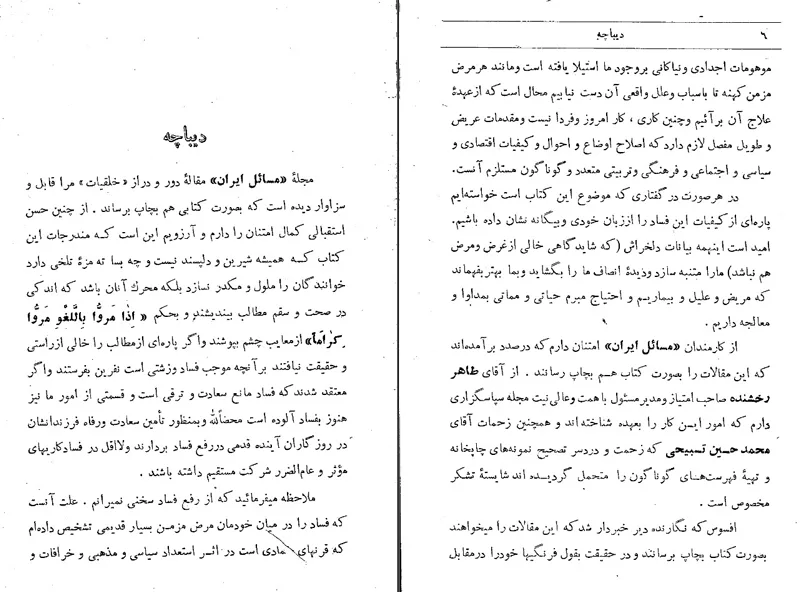 دیباچه
مجلهٔ «مسائل ایران» مقالهٔ دور و دراز «خلقیات» مرا قابل و
سزاوار دیده است که بصورت کتابی هم بچاپ برساند . از چنین حسن
استقبالی کمال امتنان را دارم و آرزویم این است کـه مندرجات این
کتاب کـه همیشه شیرین و دلپسند نیست و چه بسا ته مزهٔ تلخی دارد
خوانندگان را ملول و مکدر نسازد بلکه محرك آنان باشد که اندکی
در صحت و سقم مطالب بیندیشند و بحکم « اِذٰا مَروُّا بِاللَّغْوِ مَروُّا
کِراٰماً» ازمعایب چشم بپوشند واگر پاره‌ای ازمطالب را خالی ازراستی
و حقیقت نیافتند برآنچه موجب فساد وزشتی است نفرین بفرستند واگر
معتقد شدند که فساد مانع سعادت و ترقی است و قسمتی از امور ما نیز
هنوز بفساد آلوده است محضاًلله وبمنظور تأمین سعادت ورفاه فرزندانشان
در روزگاران آینده قدمی دررفع فساد بردارند ولااقل در فسادکاریهای
مؤثر و عام‌الضرر شرکت مستقیم نداشته باشند .
ملاحظه میفرمائید که از رفع فساد سخنی نمیرانم . علت آنست
که فساد را در میان خودمان مرض مزمـن بسیار قدیمی تشخیص داده‌ام
که قرنهای متمادی است در اثـر استعداد سیاسی و مذهبی و خرافات و
۶
دیباچه
موهومات اجدادی ونیاکانی بروجود ما استیلا یافته است ومانند هرمرض
مزمن کهنه تا باسباب وعلل واقعی آن دست نیابیم محال است که ازعهدهٔ
علاج آن برآئیم وچنین کاری ، کار امروز وفردا نیست ومقدمات عریض
و طویل مفصل لازم دارد که اصلاح اوضاع و احوال و کیفیات اقتصادی و
سیاسی و اجتماعی و فرهنگی وتربیتی متعدد و گوناگون مستلزم آنست.
در هرصورت در گفتاری که موضوع این کتاب است خواسته‌ایم
پاره‌ای از کیفیات این فساد را اززبان خودی وبیگانه نشان داده باشیم.
امید است اینهمه بیانات دلخراش (که شاید گاهی خالی ازغرض ومرض
هم نباشد) مارا متنبه سازد ودیدهٔ انصاف ما را بگشاید وبما بهتربفهماند
که مریض و علیل و بیماریـم و احتیاج مبرم حیاتی و مماتی بمداوا و
معالجه داریم .
از کارمندان «مسائل ایران» امتنان دارم که درصدد برآمده‌اند
که این مقالات را بصورت کتاب هـم بچاپ رسانند . از آقای طاهر
رخشنده صاحب امتیاز ومدیر مسئول با همت وعالی نیت مجله سپاسگزاری
دارم که امور ایـن کار را بعهده شناخته‌اند و همچنین زحمات آقای
محمد حسین تسبیحی که زحمت و دردسر تصحیح نمونه‌های چاپخانه
و تهیهٔ فهرست‌هـای گوناگون را متحمل گردیـده اند شایستهٔ تشکر
مخصوص است .
افسوس که نگارنده دیر خبردار شد که این مقالات را میخواهند
بصورت کتاب بچاپ برسانند و در حقیقت بقول فرنگیها خودرا درمقابل